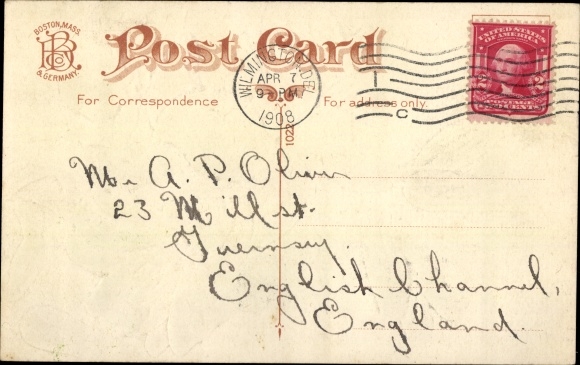 BOSTON, MASS.
RB Co
& GERMANY.
Post Card
WILMINGTON, DEL.
APR 7
9 PM
1908
C
UNITED STATES
OF AMERICA
POSTAGE
For Correspondence
For address only.
1022
Mr A. P. Olivier
23 Mill st.
Guernsey.
English Channel,
England.